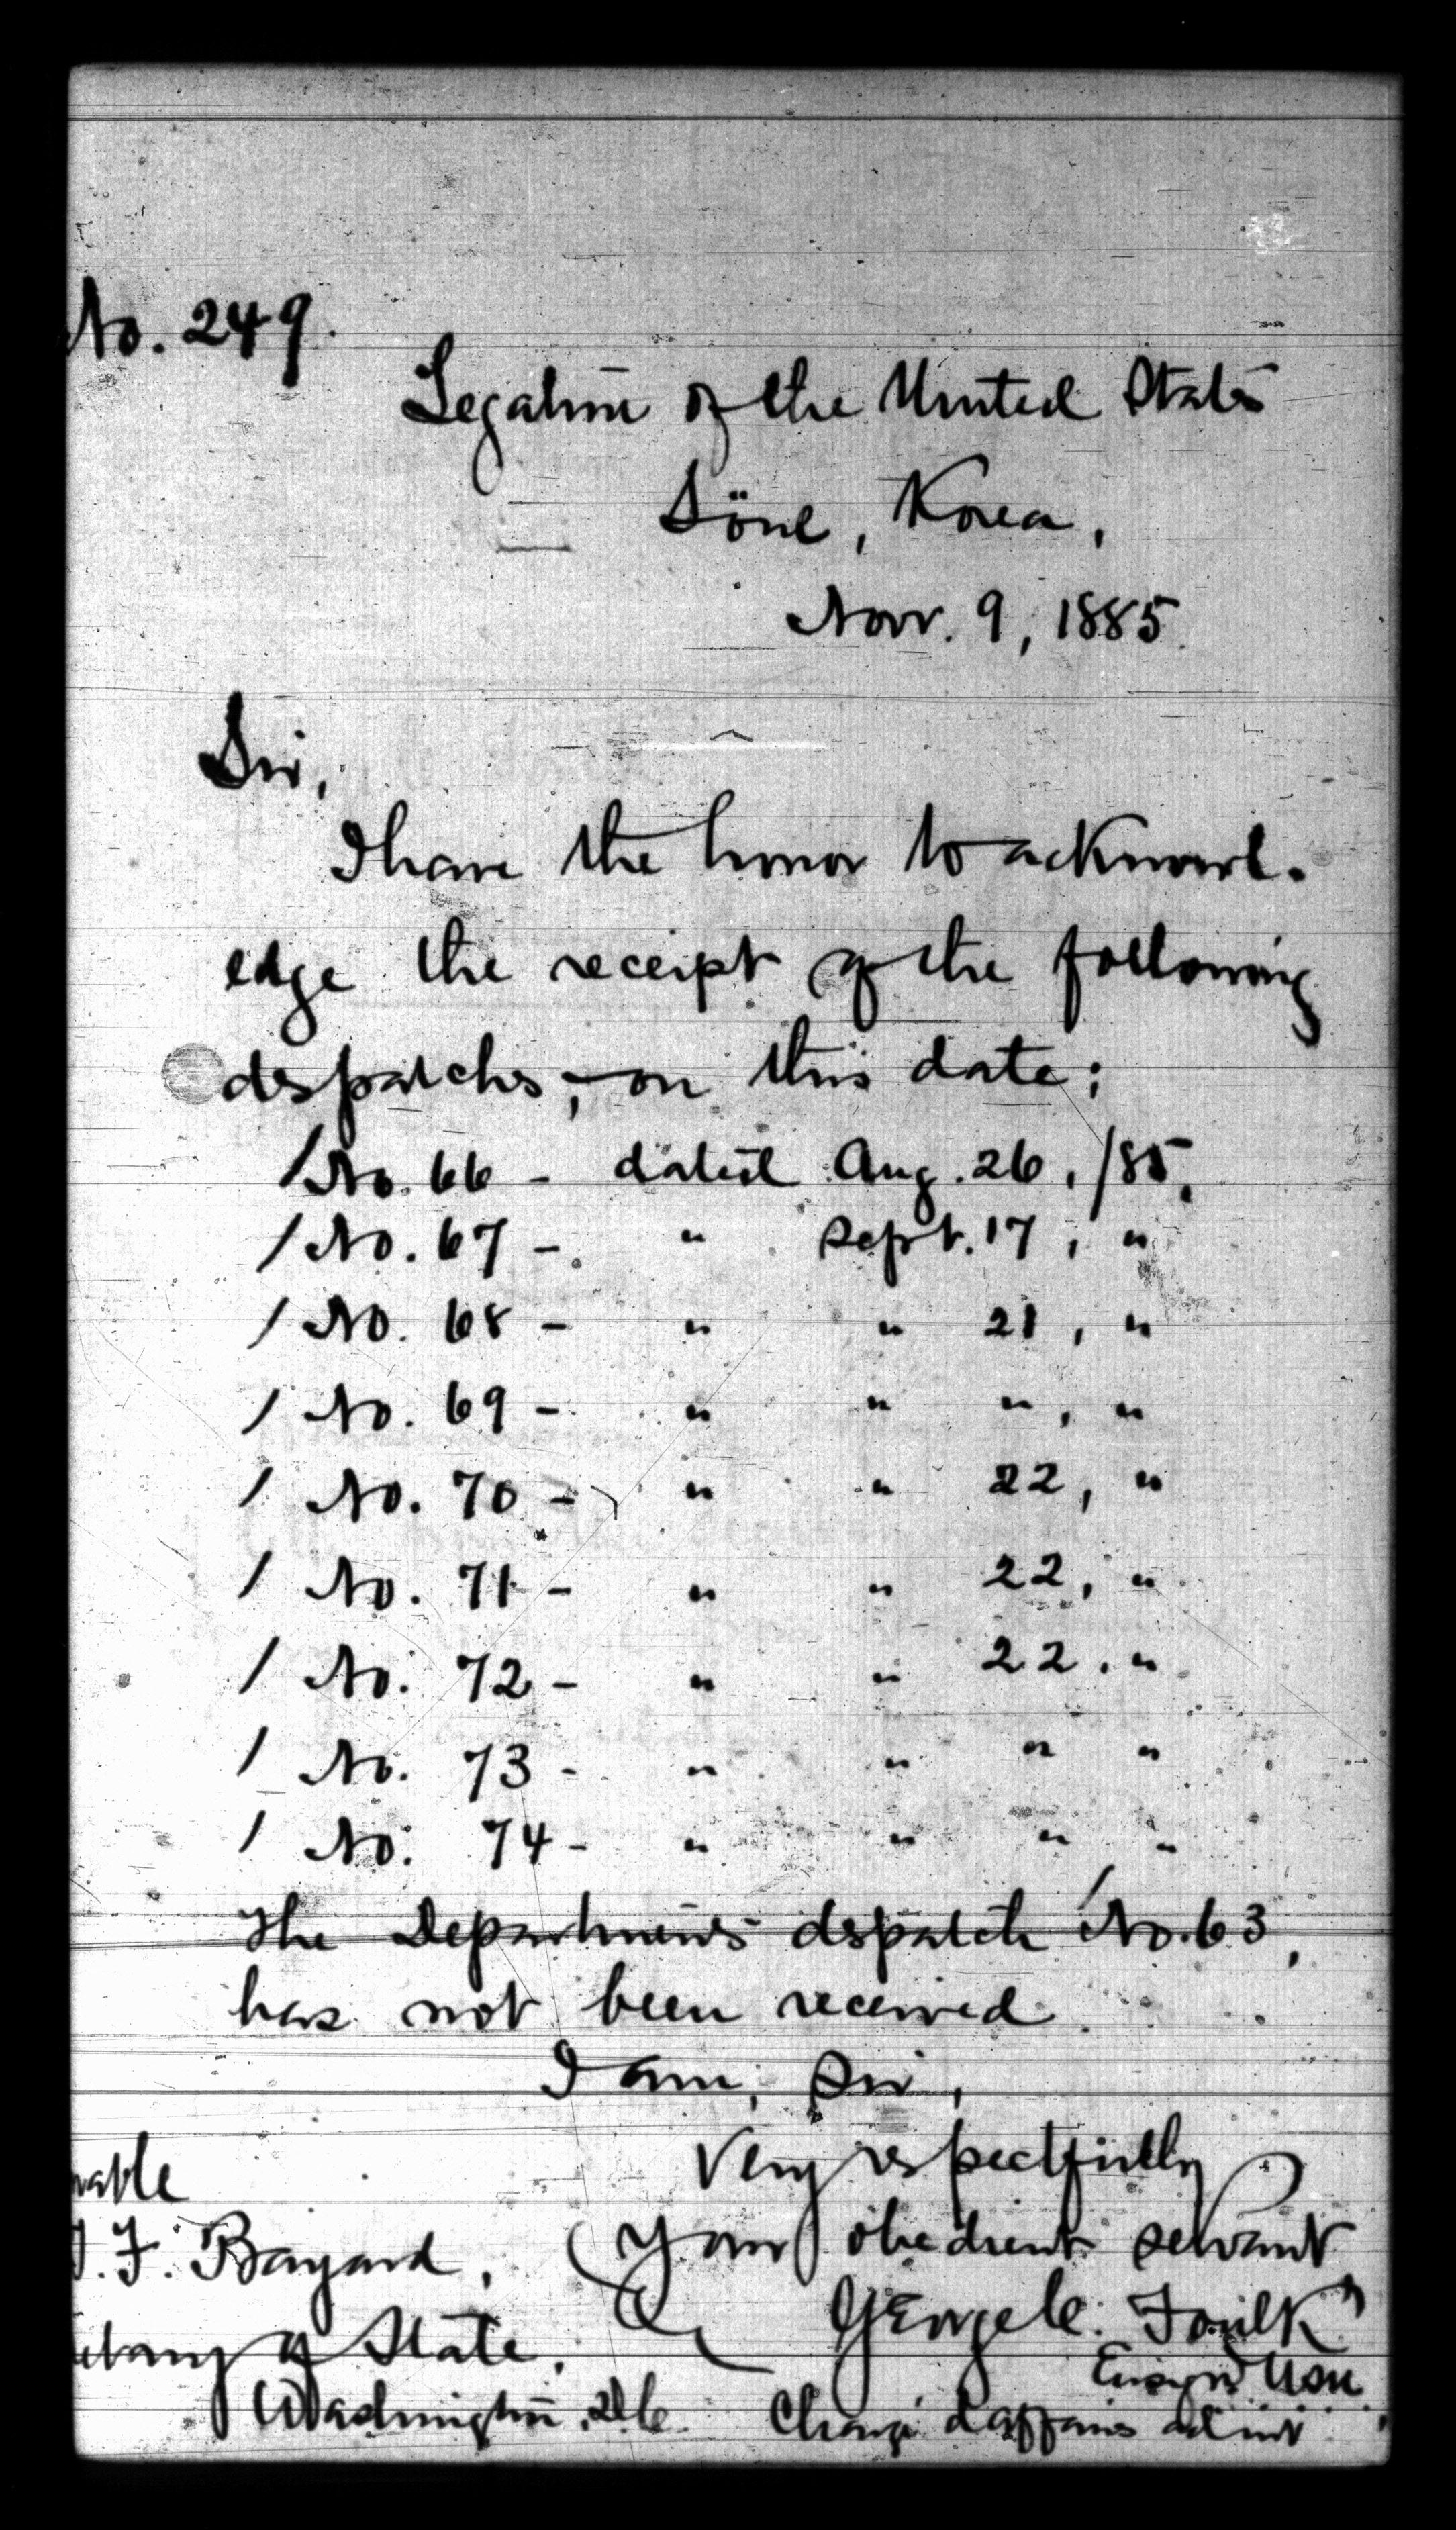 No. 249.
Legation of the United States
Söul, Korea,
Nov. 9, 1885
Sir,
I have the honor to acknowl-
edge the receipt of the following
despatches, on this date:
/ No. 66 - dated Aug. 26, /85.
/ No. 67 - " Sept. 17, "
/ No. 68 - " " 21, "
/ No. 69 - " " ", "
/ No. 70 - " " 22, "
/ No. 71 - " " 22, "
/ No. 72 - " " 22, "
/ No. 73 - " " " "
/ No. 74 - " " " "
The Department's despatch No. 63,
has not been received.
I am, Sir,
Very respectfully
Your obedient servant
George C. Foulk
Ensign USN
Chargé d'affaires ad int
rable
T. F. Bayard,
etary of State,
Washington, D.C.